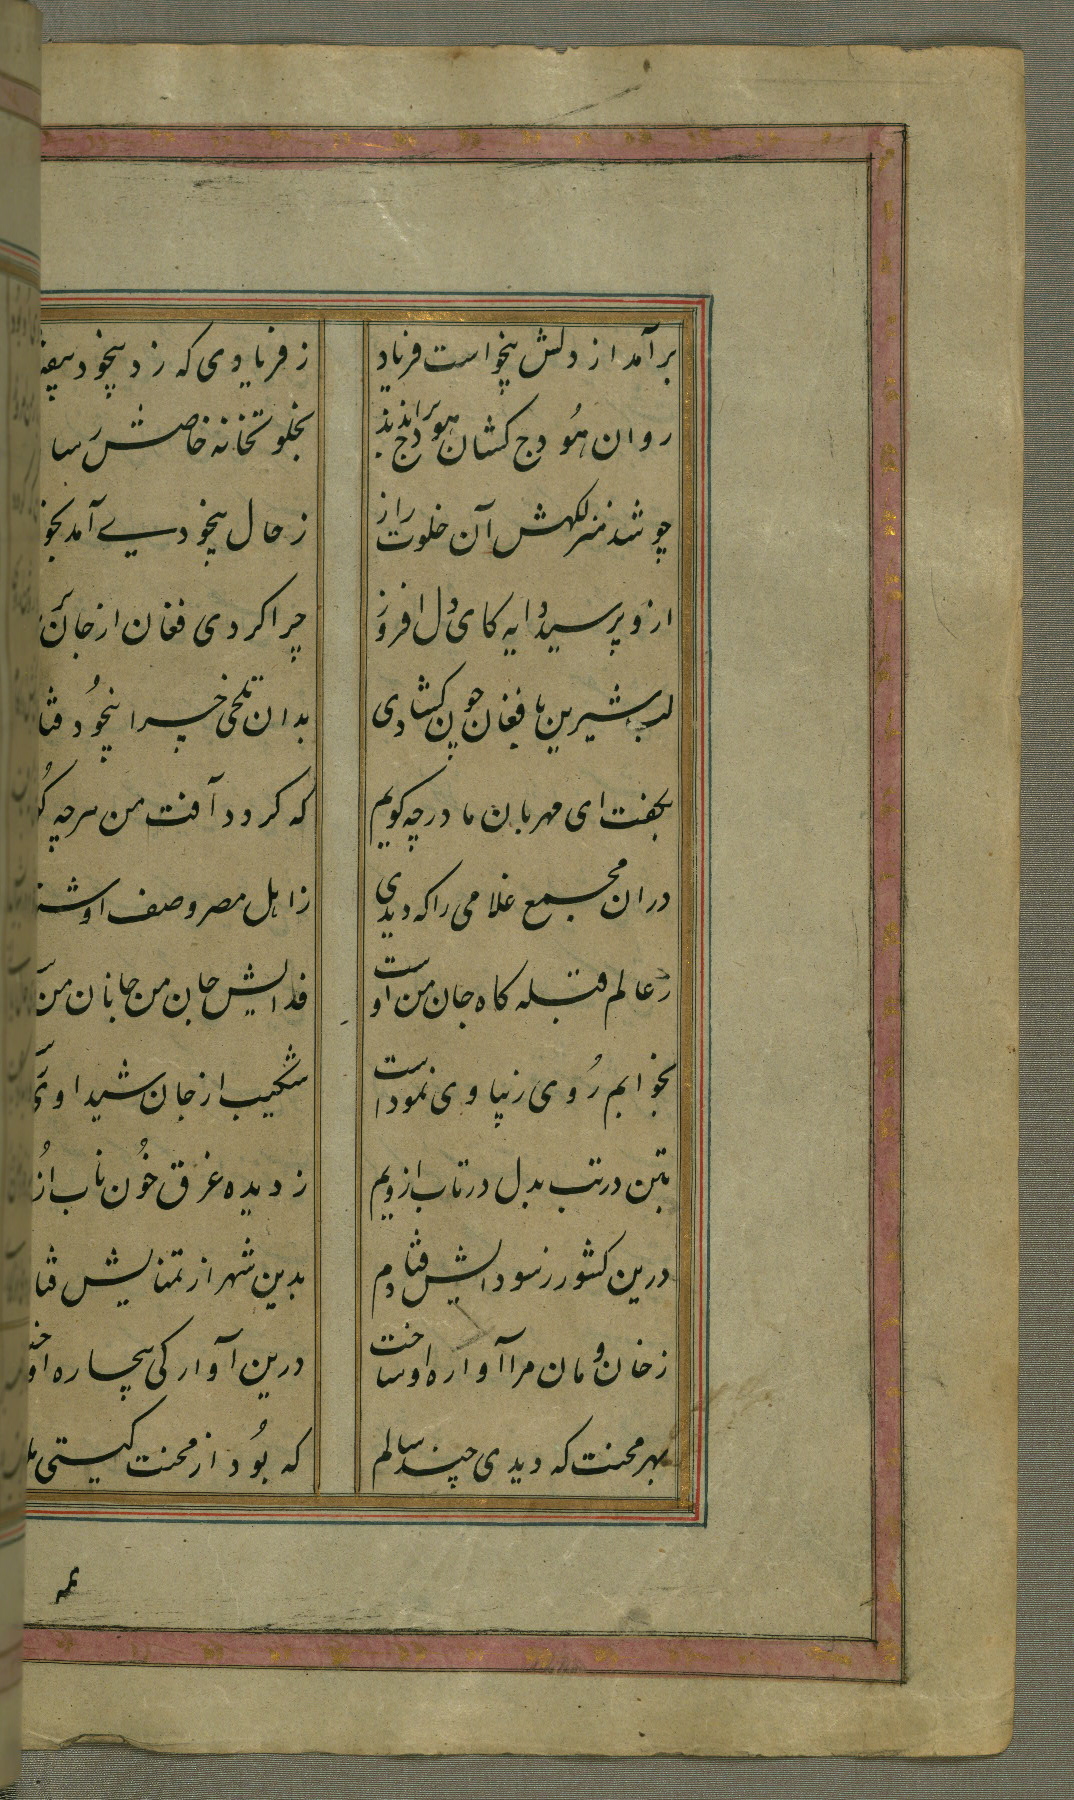 برآمد از دلش بیخواست فریاد ز فریادی که زد بیخود بیفتاد
روان هودج کشان هودج براندند بخلوتخانه خاصش رسا
چو شد منزلگهش آن خلوت راز ز حال بیخودیے آمد بخو
ازو پرسید دایه کای دل افروز چرا کردی فغان از جان
لب شیرین بافغان چون کشادی بدان تلخی چرا بیخود فتا
بگفت ای مهربان مادر چه گویم که گردد آفت من هرچه گو
دران مجمع غلامی را که دیدی ز اهل مصر وصف او شن
ز عالم قبله گاه جان من اوست فدایش جان من جانان من
بخوابم روی زیبا وی نمودست شکیب از جان شیدا وی
بتن در تب بدل در تاب ازویم ز دیده غرق خون ناب از
درین کشور ز سودایش فتادم بدین شهر از تمنایش فتا
ز خان و مان مرا آواره او ساخت درین آوارگی بیچاره او
بهر محنت که دیدی چند سالم که بود از محنت گیتی